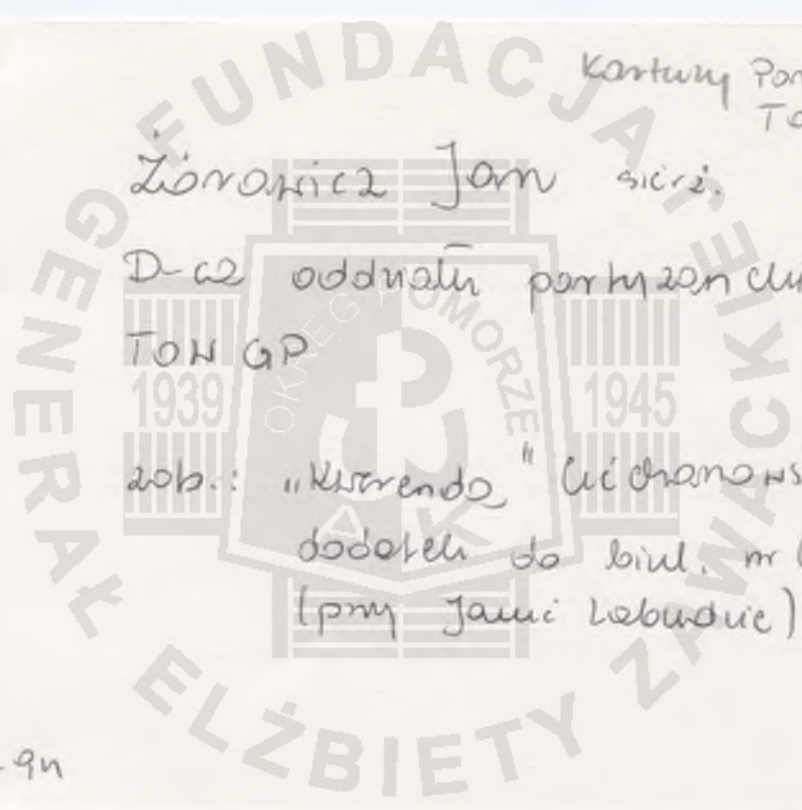 Kartuzy Pom
TO
Żórawicz Jan sierż.
D-ca oddziału partyzanck
TOW GP
zob.: "Kwerenda" Ciechanows
dodatek do biul. nr
(przy Janie Labudzie)
FUNDACJA GENERAŁ ELŻBIETY ZAWACKIEJ
OKRĘG POMORZE
1939 1945
AK